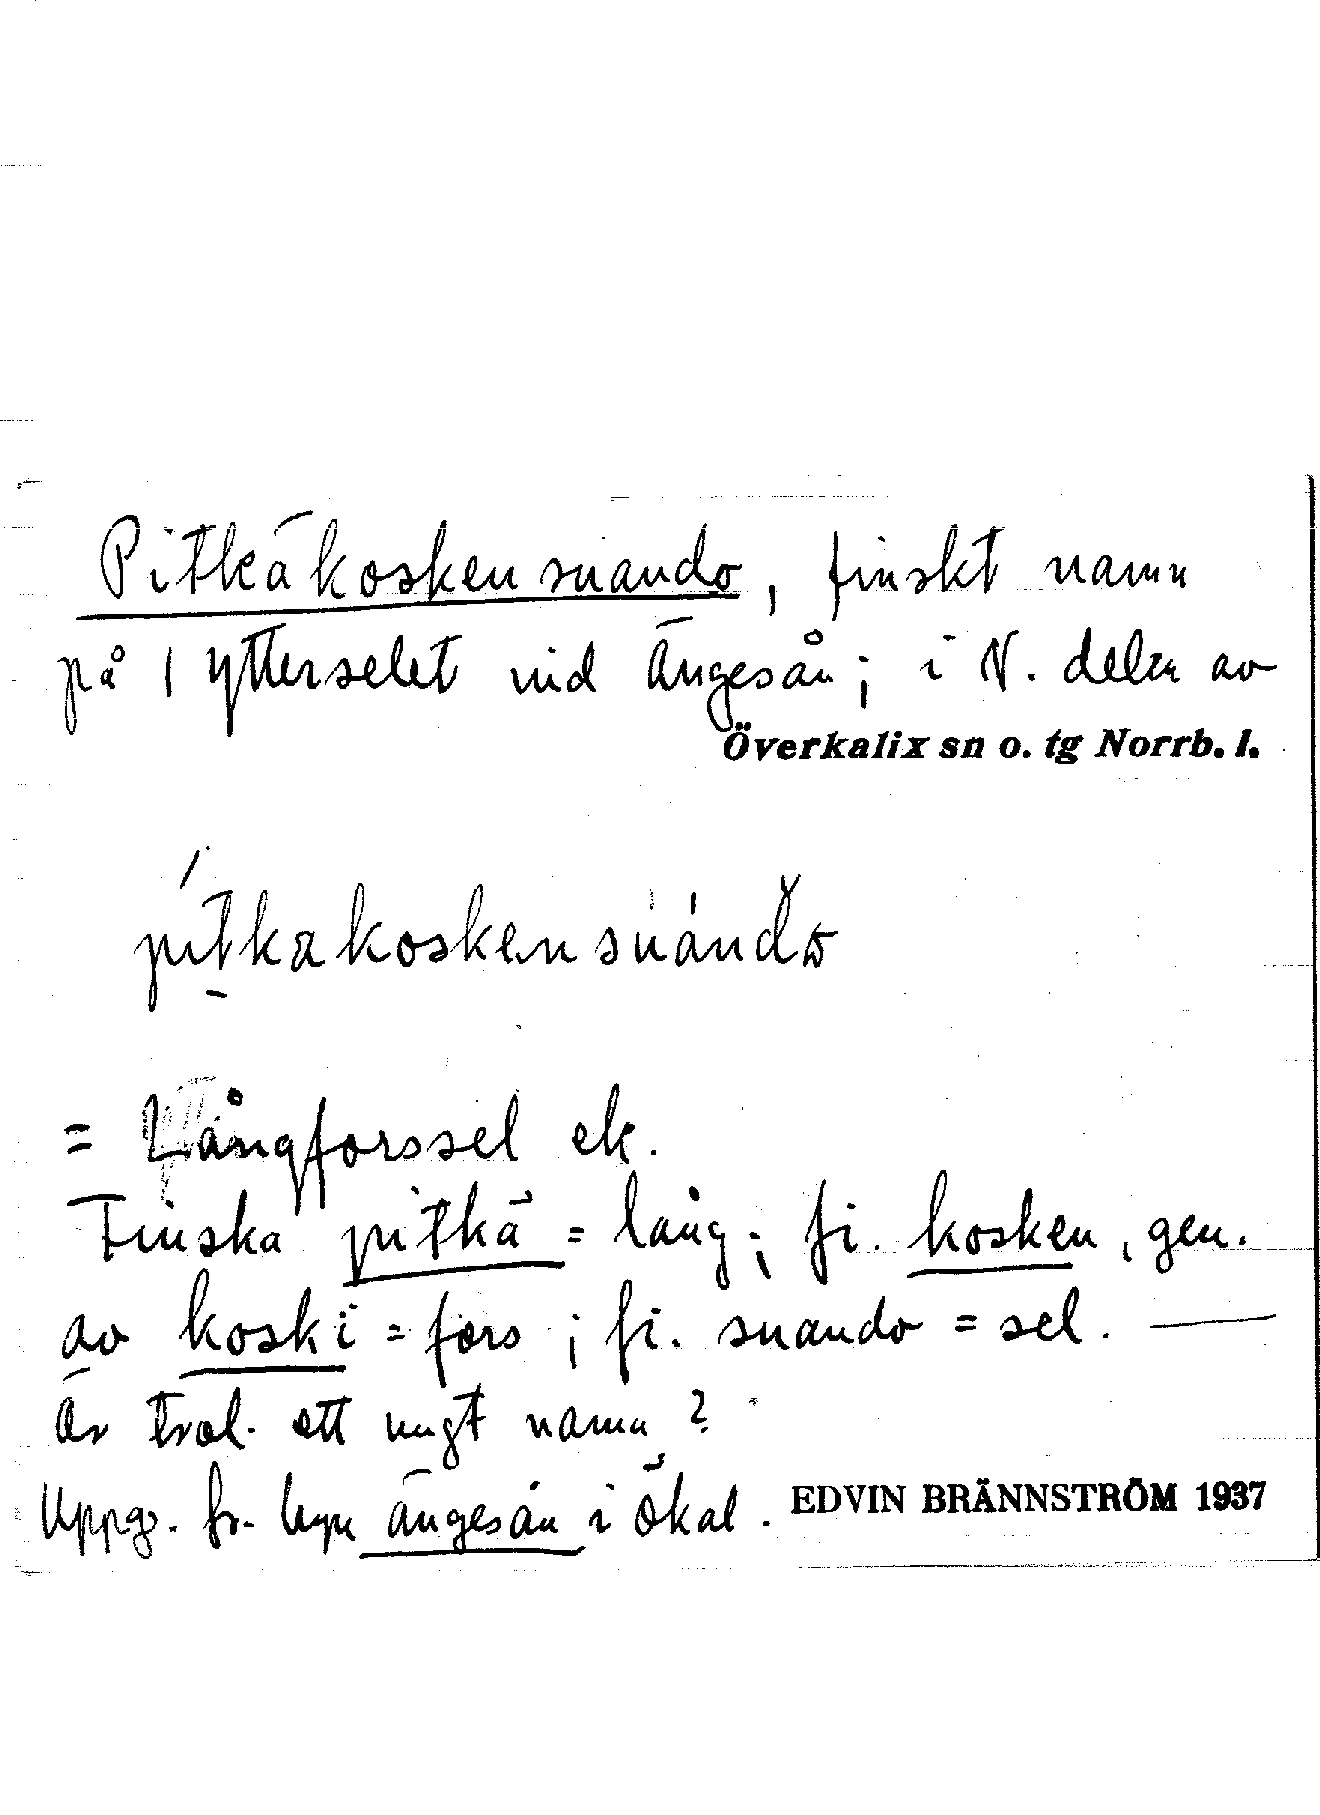 Pitkäkoskensuando, finskt namn
på 1 Ytterselet vid Ängesån; i N. delen av
Överkalix sn o. tg Norrb. l.
pitkakoskensuando
= Långforssel ek.
Finska pitkä = lång; fi. kosken, gen.
av koski = fors; fi. suando = sel. —
Är trol. ett ungt namn?
Uppg. fr. byn Ängesån i Ökal. EDVIN BRÄNNSTRÖM 1937